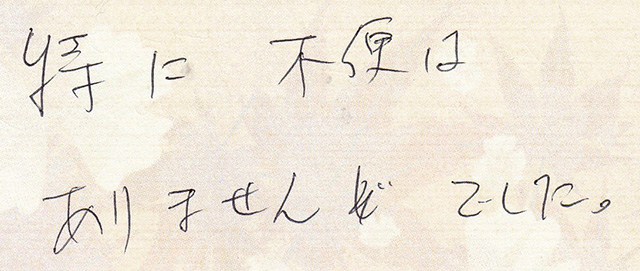 特に 不便は
ありませんぞ でした。